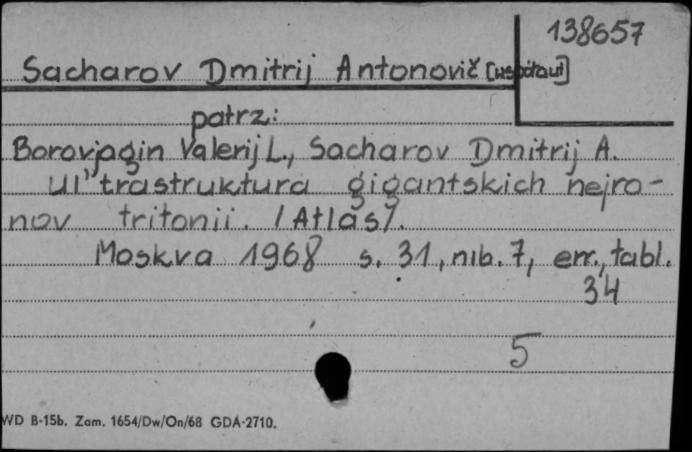 138657
Sacharov Dmitrij Antonovič [współaut]
patrz:
Borovjagin Valerij L., Sacharov Dmitrij A.
Ul'trastruktura gigantskich nejro-
nov tritonii. /Atlas/.
Moskva 1968 s. 31, nib. 7, err., tabl.
34
5
WD B-15b. Zam. 1654/Dw/On/68 GDA-2710.